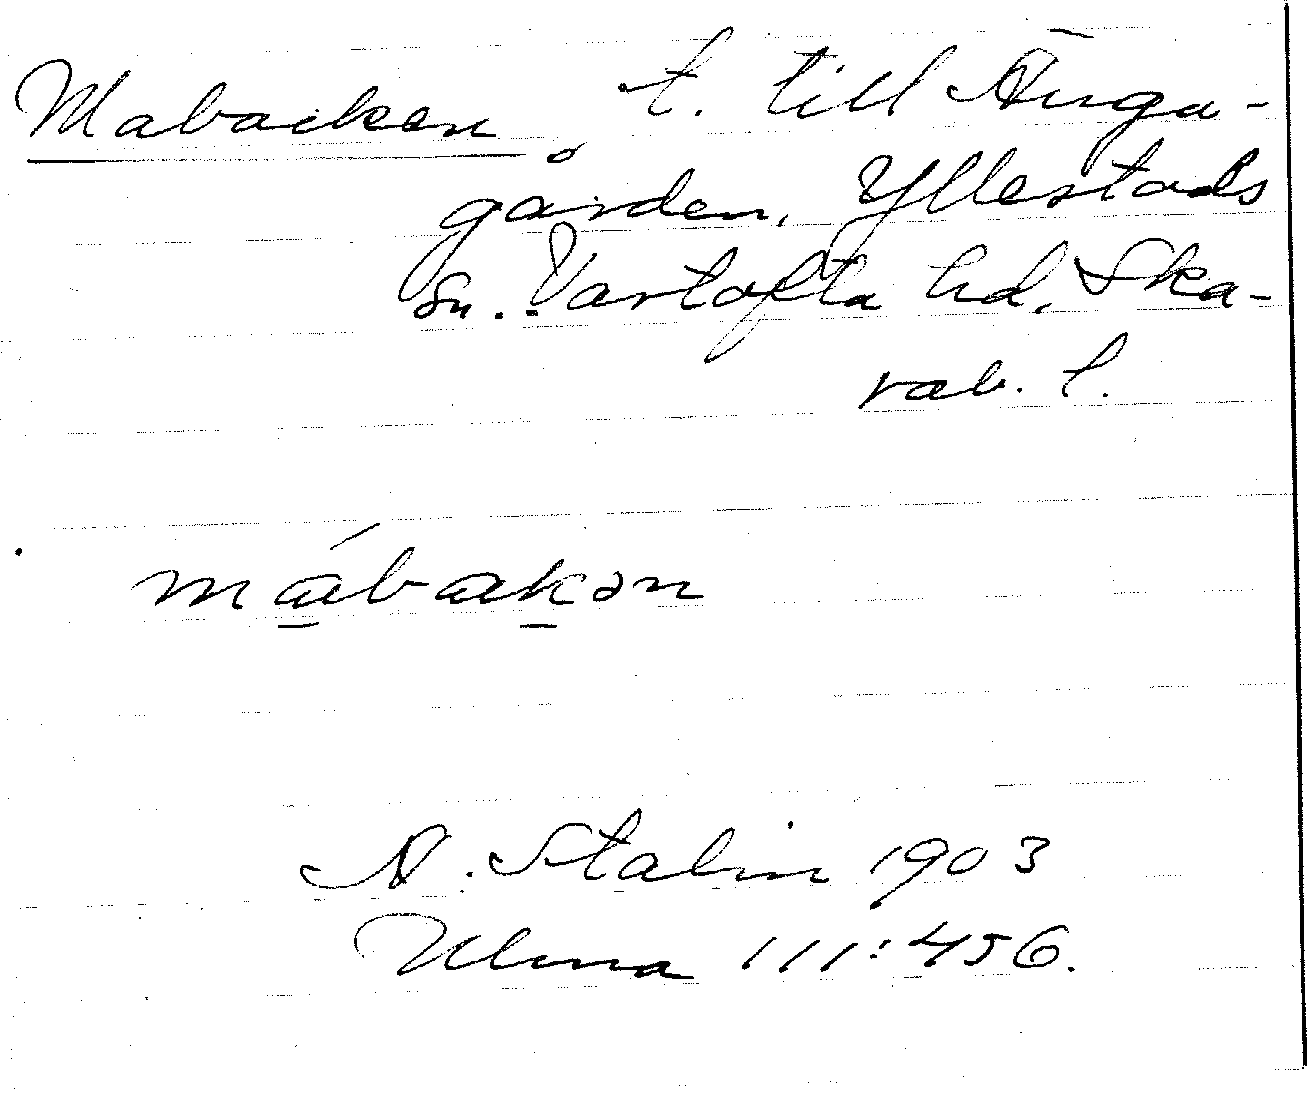 Mabacken, t. till Änga-
gården, Yllestads
sn. Vartofta hd, Ska-
rab. l.
mábakən
A. Stalin 1903
Ulma 111:456.